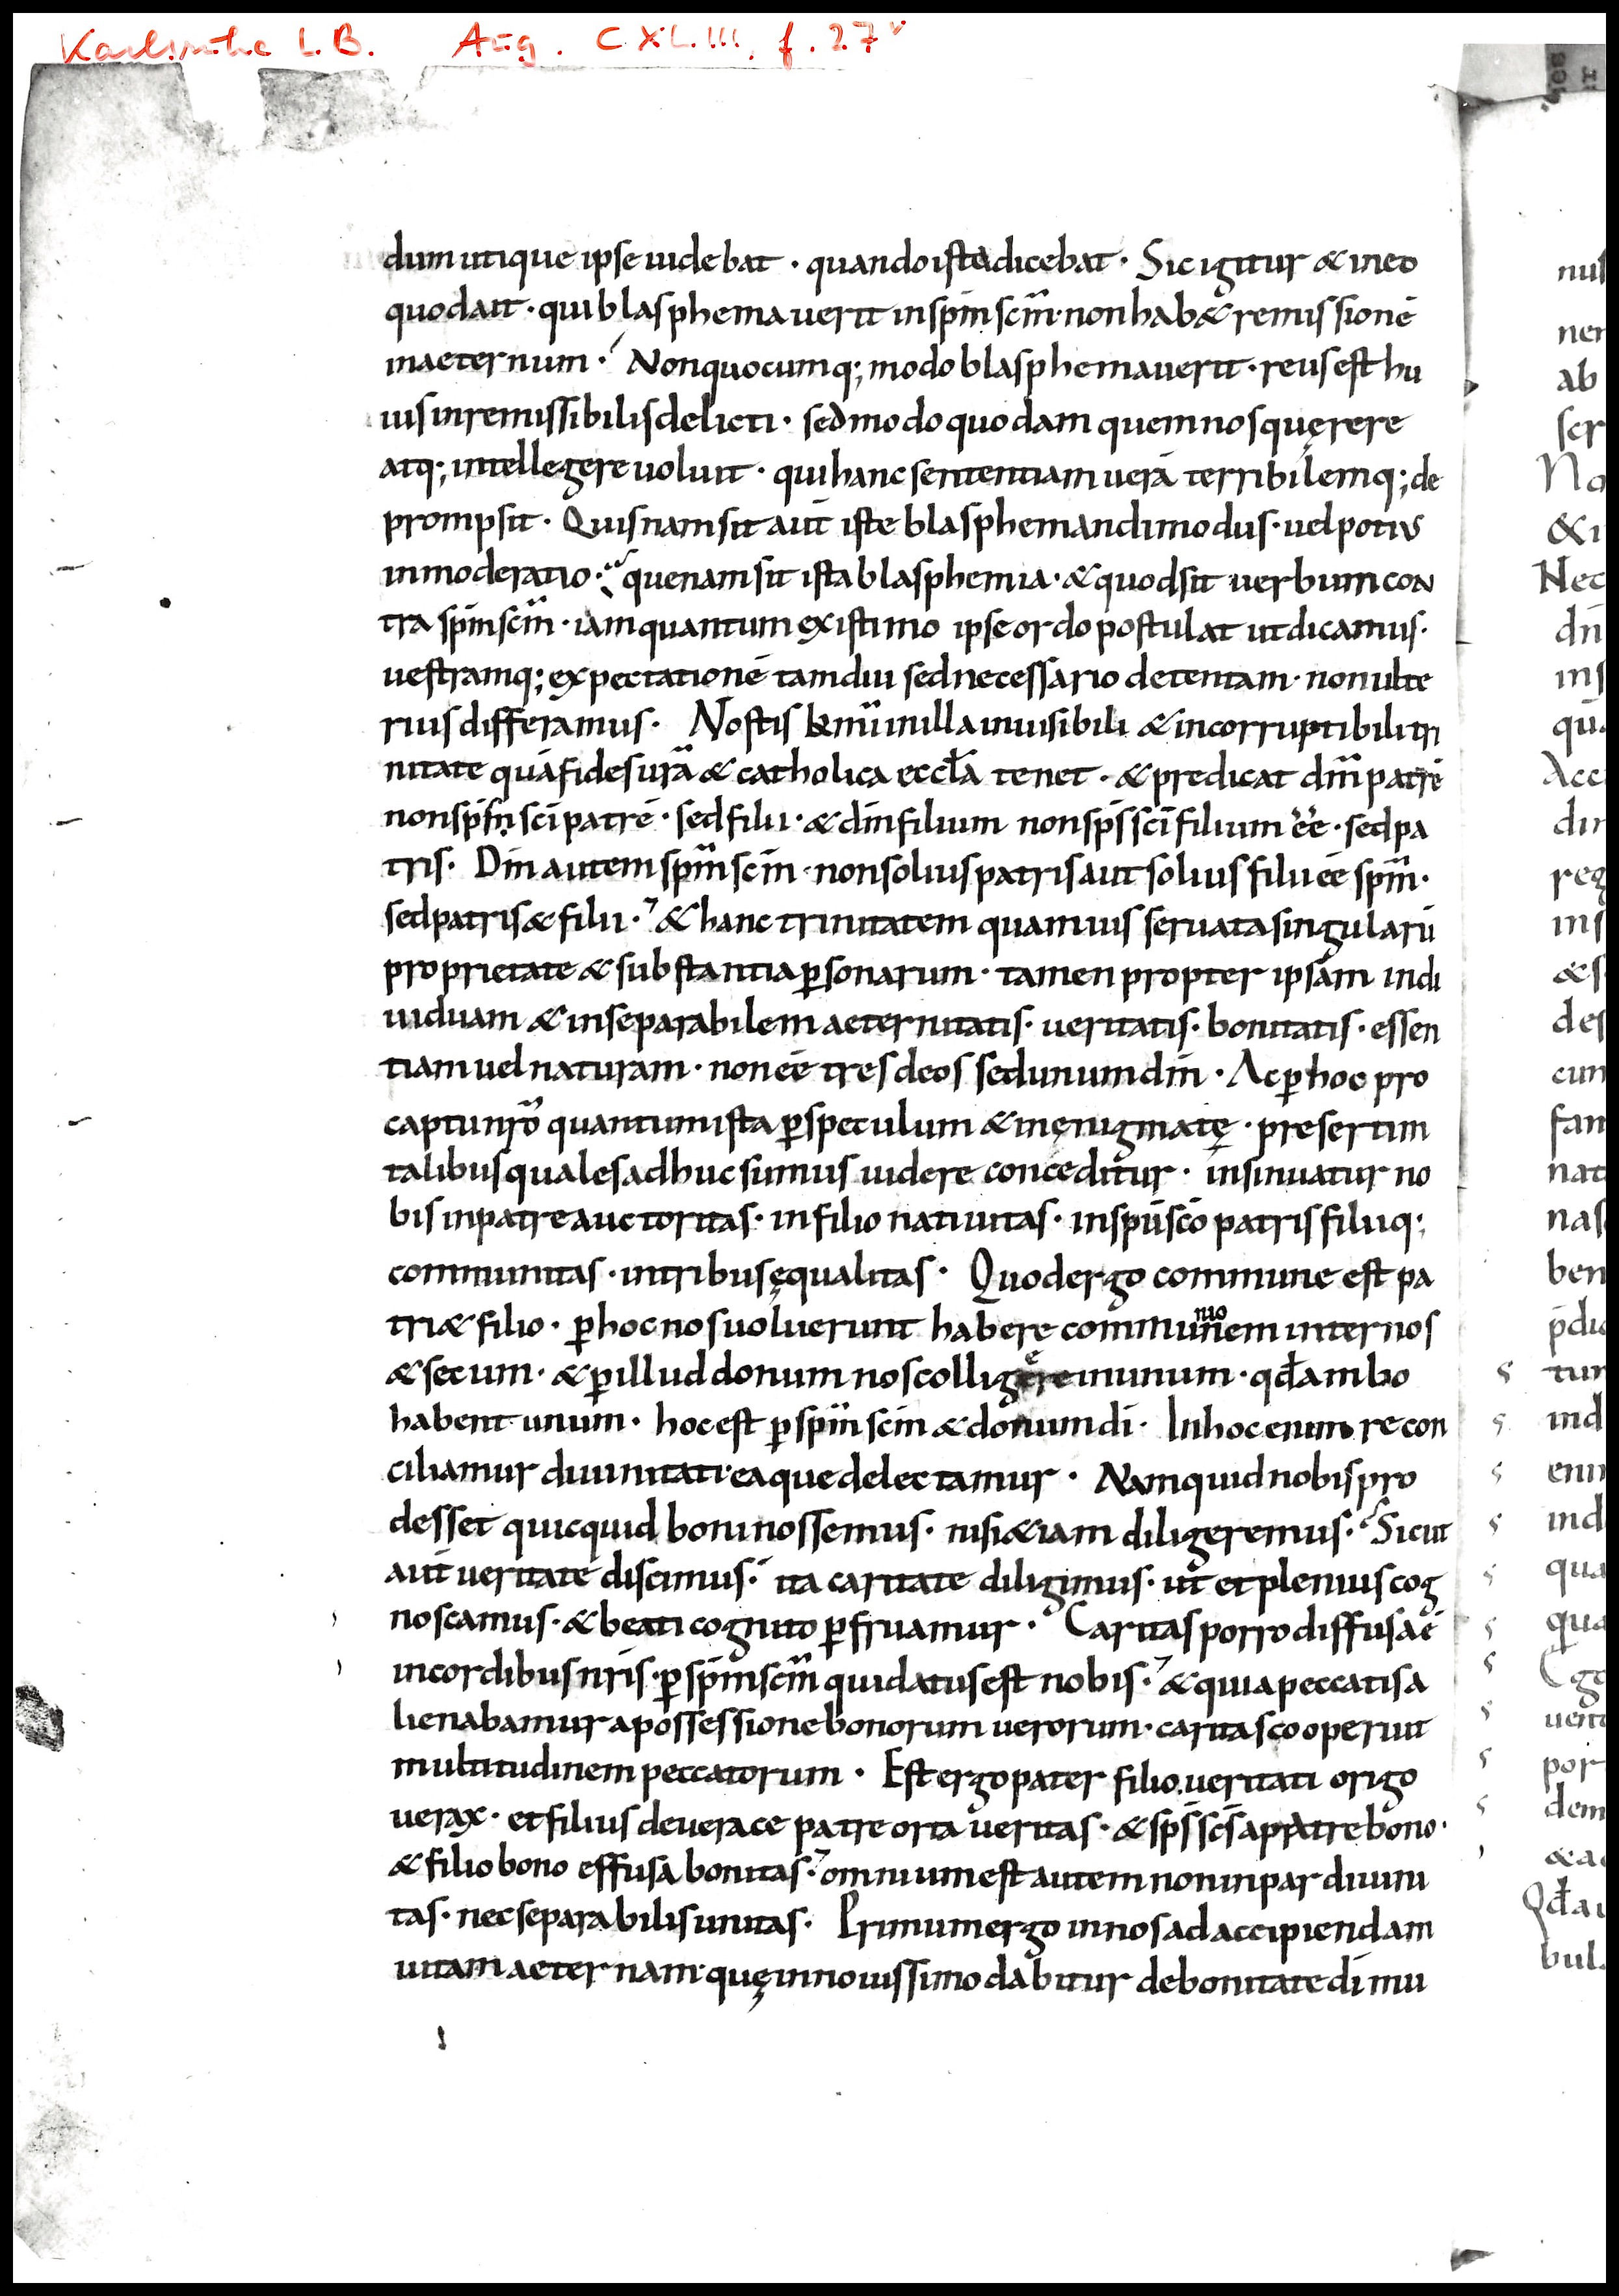 Karlsruhe L.B. Aug. CXLIII, f. 27v
dum utique ipse uidebat · quando ista dicebat · Sic igitur & in eo
quod ait · qui blasphemauerit in spm̄ scm̄ · non hab& remissionē
in aeternum · Non quocumq; modo blasphemauerit · reus est hu
ius inremissibilis delicti · sed modo quodam quem nos quęrere
atq; intellegere uoluit · qui hanc sententiam uerā terribilemq; de
prompsit · Quisnam sit aut̄ iste blasphemandi modus · uel potius
inmoderatio · quenam sit ista blasphemia · & quod sit uerbum con
tra spm̄ scm̄ · iam quantum existimo ipse ordo postulat ut dicamus ·
uestramq; expectationē tamdiu sed necessario detentam · non ulte
rius differamus · Nostis kmī in illa inuisibili & incorruptibili tri
nitate quā fides nr̄a & catholica eccl̄a tenet · & predicat dm̄ patrē
non spm̄ sci patrē · sed filii · & dm̄ filium non sps̄ sci filium ēē · sed pa
tris · Dm̄ autem spm̄ scm̄ · non solius patris aut solius filii ēē spm̄ ·
sed patris & filii · & hanc trinitatem quamuis seruata singularū
proprietate & substantia p̄sonarum · tamen propter ipsam indi
uiduam & inseparabilem aeternitatis · ueritatis · bonitatis · essen
tiam uel naturam · non ēē tres deos sed unum dm̄ · Ac p̄ hoc pro
captu nr̄o quantum ista p̄ speculum & in ęnigmatę · presertim
talibus quales adhuc sumus uidere conceditur · insinuatur no
bis in patre auctoritas · in filio natiuitas · in spū scō patris filiiq;
communitas · in tribus ęqualitas · Quod ergo commune est pa
tri & filio · p̄ hoc nos uoluerunt habere communionem inter nos
& secum · & p̄ illud donum nos colligere in unum · qd̄ ambo
habent unum · hoc est p̄ spm̄ scm̄ & donum dī · In hoc enim recon
ciliamur diuinitati eaque delectamur · Nam quid nobis pro
desset quicquid boni nossemus · nisi &iam diligeremus · Sicut
aut̄ ueritate discimus · ita caritate diligimus · ut et plenius cog
noscamus · & beati cognito p̄fruamur · Caritas porro diffusa ē
in cordibus nr̄is · p̄ spm̄ scm̄ qui datus est nobis · & quia peccatis a
lienabamur a possessione bonorum uerorum · caritas cooperuit
multitudinem peccatorum · Est ergo pater filio ueritati origo
uerax · et filius de uerace patre orta ueritas · & sps̄ scs̄ a patre bono ·
& filio bono effusa bonitas · omnium est autem non inpar diuini
tas · nec separabilis unitas · Primum ergo in nos ad accipiendam
uitam aeternam · quę in nouissimo dabitur de bonitate dī mu